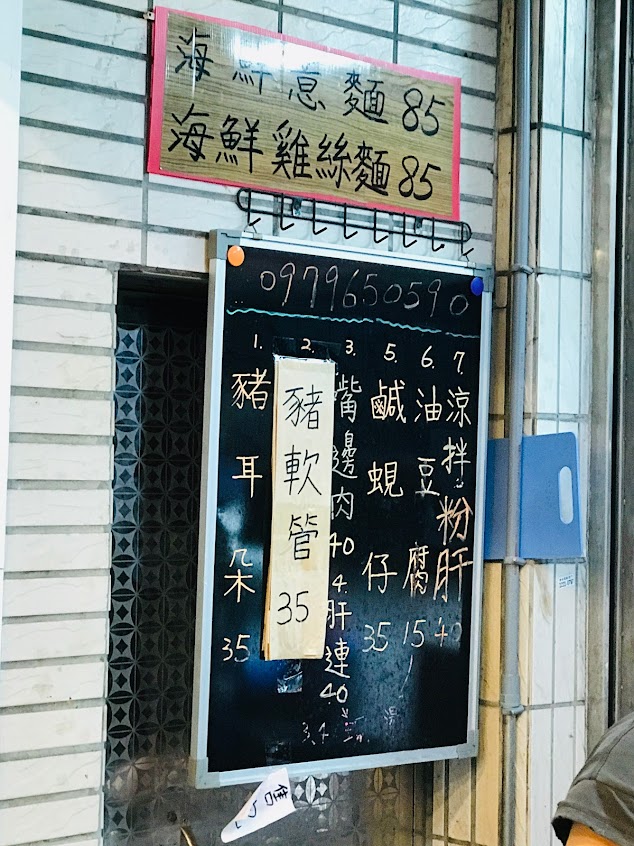 海鮮意麵 85
海鮮雞絲麵 85
0979650590
1. 豬耳朵 35
2. 豬軟管 35
3. 嘴邊肉 40
4. 肝連 40
5. 鹹蜆仔 35
6. 油豆腐 15
7. 涼拌粉肝 40